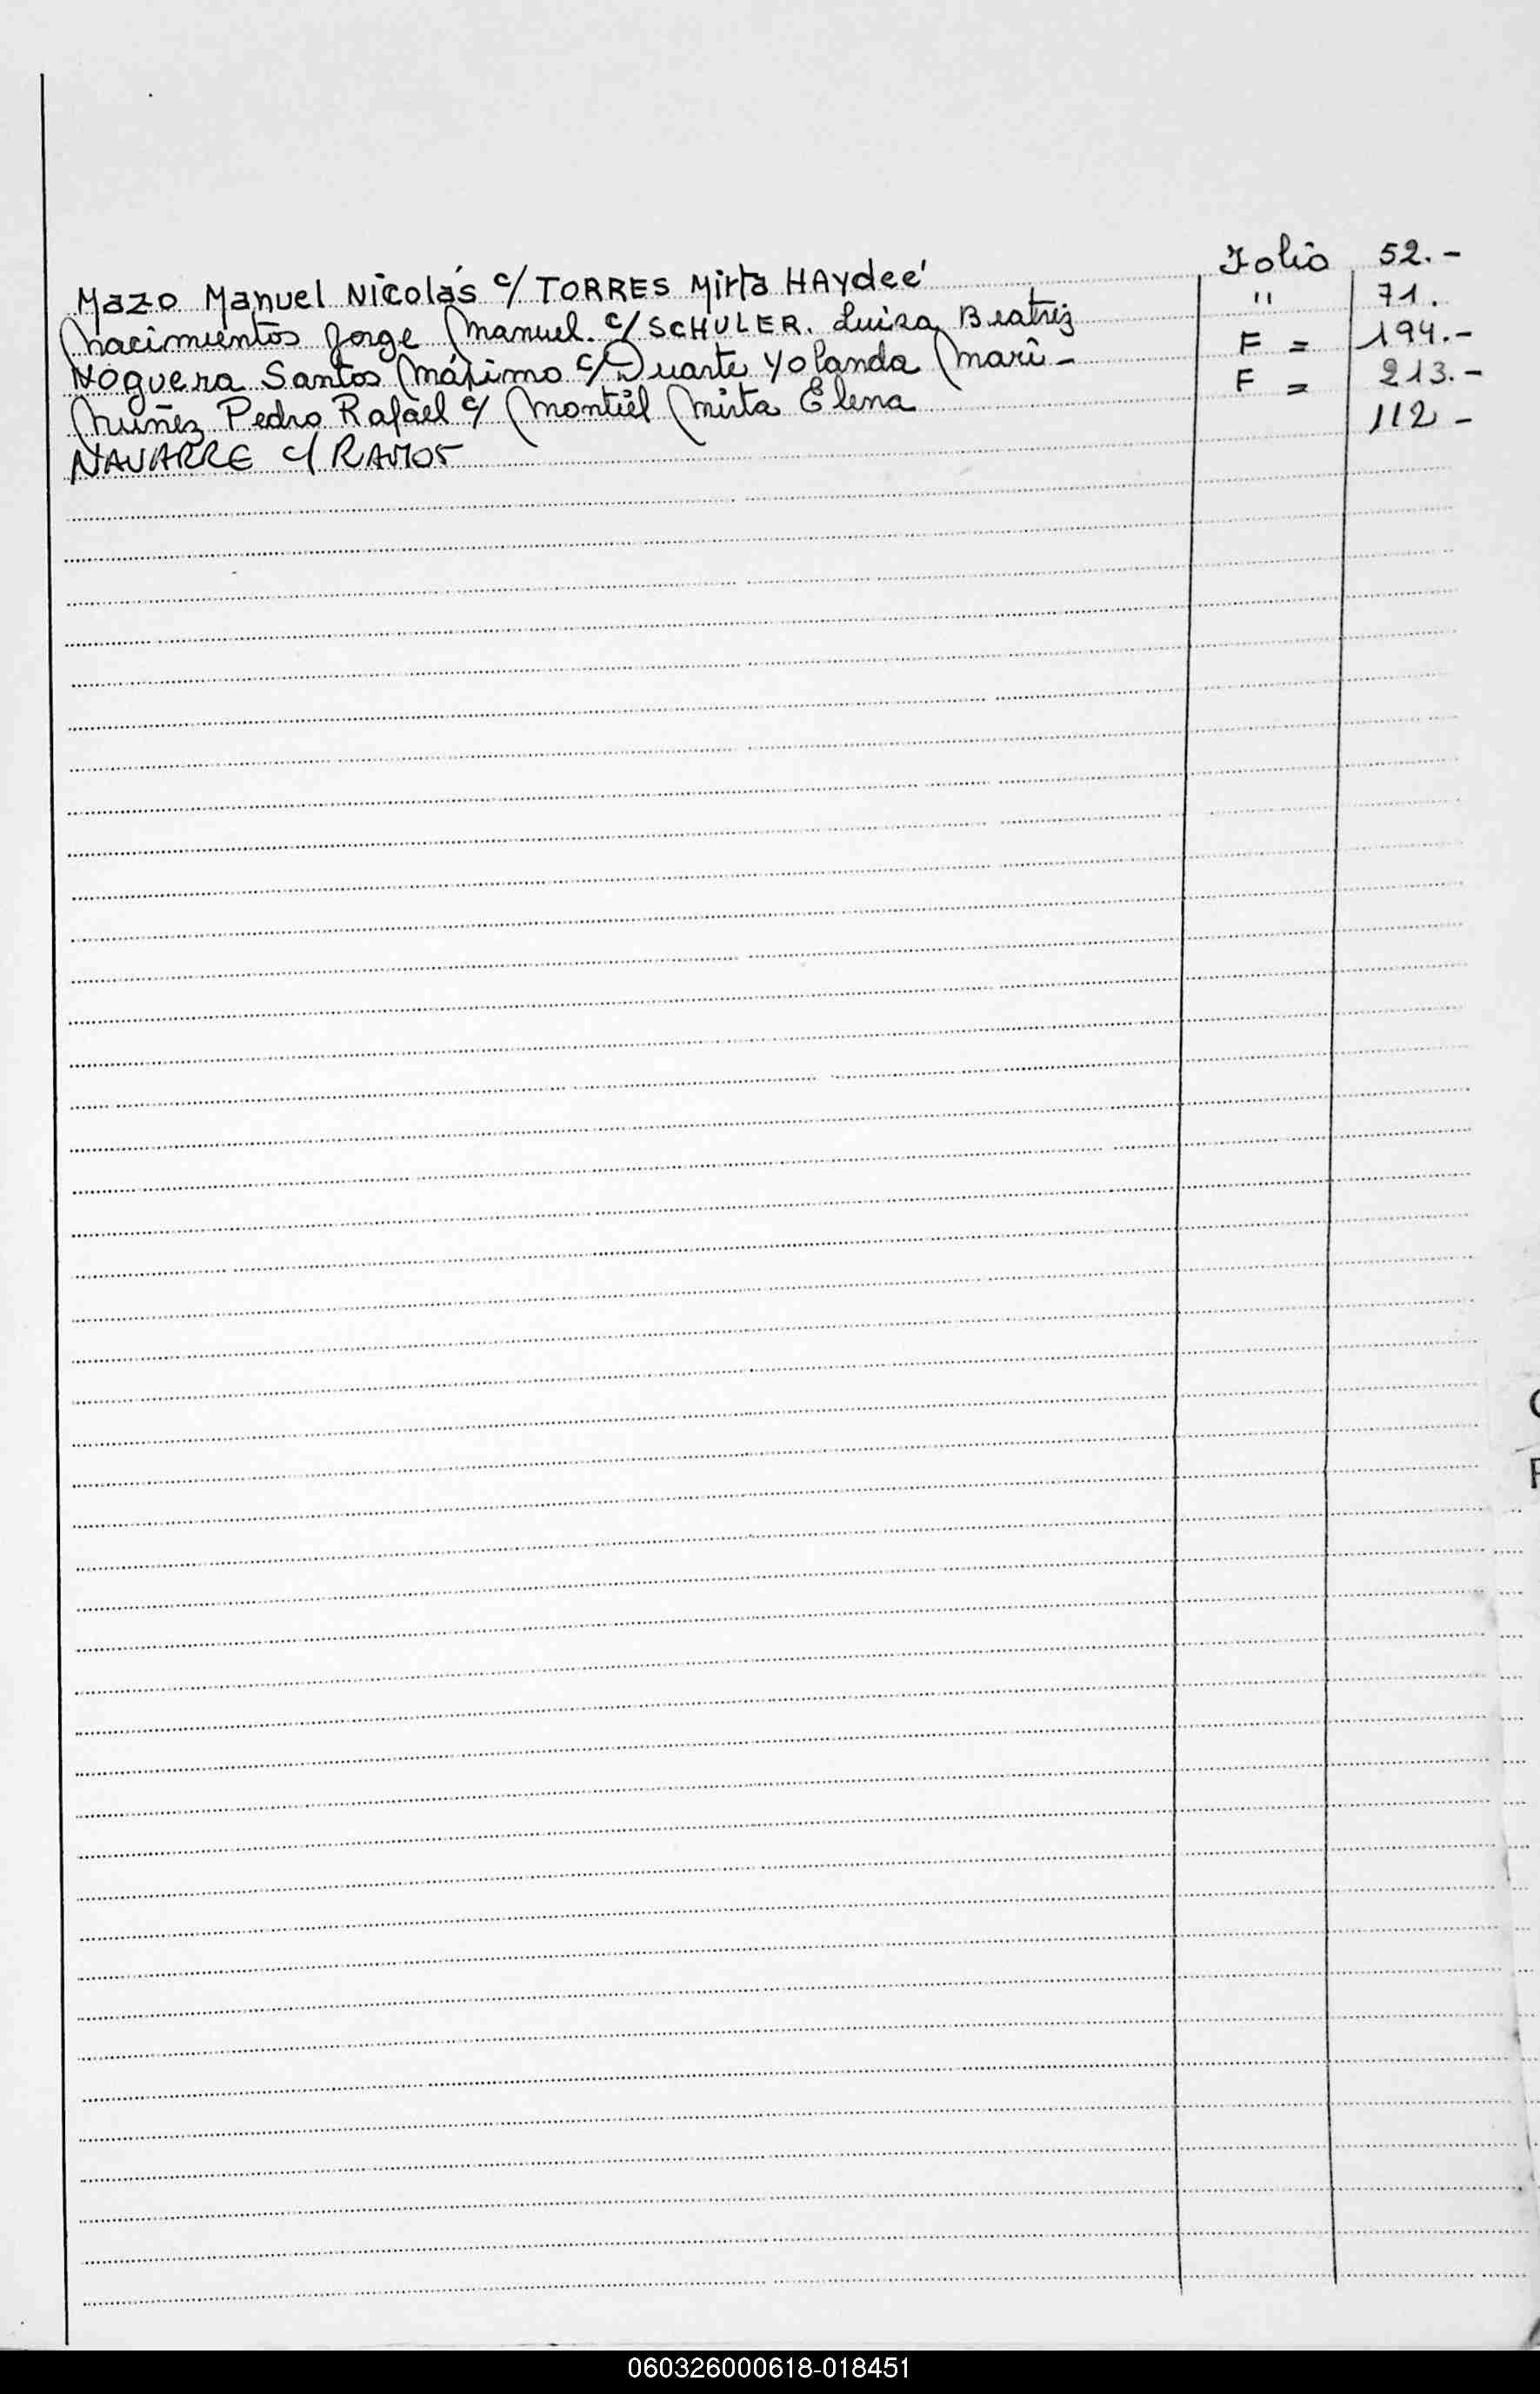 Mazo Manuel Nicolás c/ TORRES Mirta HAydeé Folio 52.-
Nacimientos Jorge Manuel. c/ SCHULER. Luisa Beatriz " 71.
Noguera Santos Máximo c/ Duarte Yolanda Mari- F = 194.-
Nuñez Pedro Rafael c/ Montiel Mirta Elena F = 213.-
NAVARRE c/ RAMOS 112 -
060326000618-018451